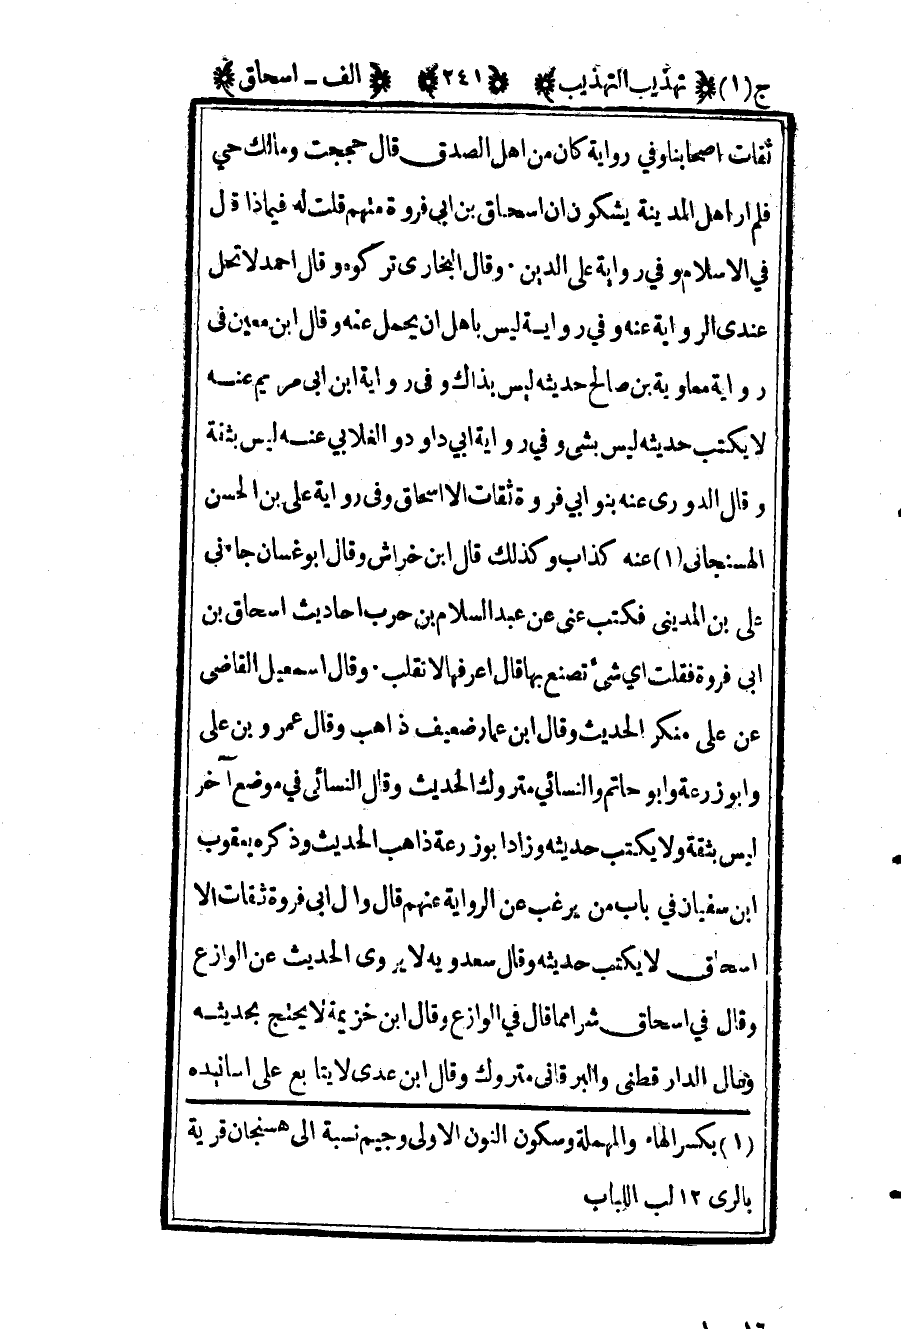 ج(١) تهذيب التهذيب ٢٤١ الف ـ اسحاق
ثقات اصحابنا وفي رواية كان من اهل الصدق قال حججت ومالك حي
فلم ار اهل المدينة يشكون ان اسحاق بن ابي فروة متهم قلت له فيماذا قال
في الاسلام وفي رواية على الدين ٠ وقال البخارى تركوه وقال احمد لا تحل
عندى الرواية عنه وفي رواية ليس باهل ان يحمل عنه وقال ابن معين فى
رواية معاوية بن صالح حديثه ليس بذاك وفى رواية ابن ابى مريم عنه
لا يكتب حديثه ليس بشى وفي رواية ابي داود والغلابي عنه ليس بثقة
وقال الدورى عنه بنو ابي فروة ثقات الا اسحاق وفى رواية على بن الحسن
الهسنجانى (١) عنه كذاب وكذلك قال ابن خراش وقال ابو غسان جاءنى
على بن المدينى فكتب عنى عن عبد السلام بن حرب احاديث اسحاق بن
ابى فروة فقلت اي شئ تصنع بها قال اعرفها لا تقلب ٠ وقال اسمعيل القاضى
عن على منكر الحديث وقال ابن عمار ضعيف ذاهب وقال عمرو بن على
وابو زرعة وابو حاتم والنسائي متروك الحديث وقال النسائى في موضع آخر
ليس بثقة ولا يكتب حديثه وزاد ابو زرعة ذاهب الحديث وذكره يعقوب
ابن سفيان في باب من يرغب عن الرواية عنهم قال وال ابى فروة ثقات الا
اسحاق لا يكتب حديثه وقال سعدويه لا يروى الحديث عن الوازع
وقال في اسحاق شرا مما قال في الوازع وقال ابن خزيمة لا يحتج بحديثه
وقال الدار قطنى والبرقانى متروك وقال ابن عدى لا يتابع على اسانيده
(١) بكسر الهاء والمهملة وسكون النون الاولى وجيم نسبة الى هسنجان قرية
بالرى ١٢ لب اللباب